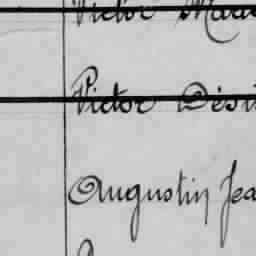 Victor
Victor Dési
Augustin Jea